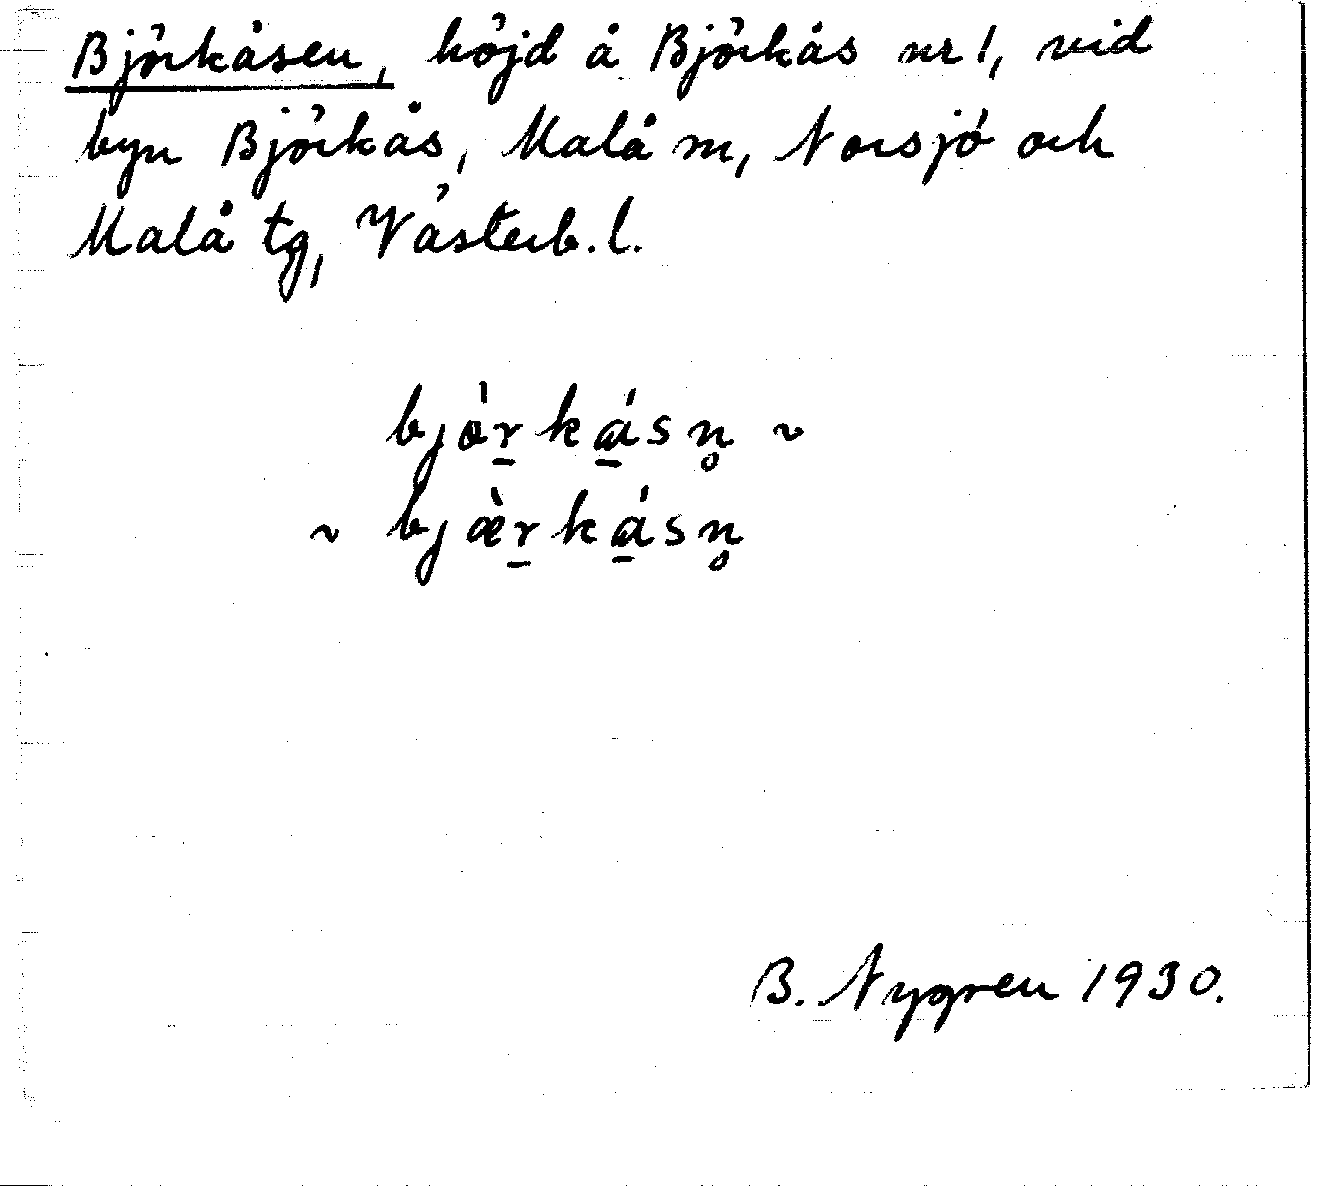 Björkåsen, höjd å Björkås nr 1, vid
byn Björkås, Malå m, Norsjö och
Malå tg, Västerb. l.
bjö̀r̠kǻ̠sn̥ ~
~ bjæ̀r̠kǻ̠sn̥
B. Nygren 1930.